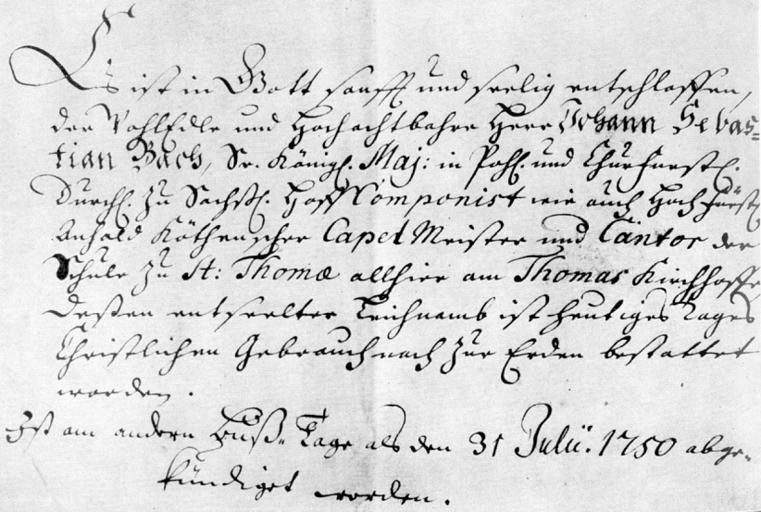 Es ist in Gott sanfft und seelig entschlaffen,
der WohlEdle und Hochachtbahre Herr Johann Sebas=
tian Bach, Sr. Königl. Maj: in Pohl. und Churfürstl.
Durchl. zu Sachß. Hoff Componist wie auch Hochfürstl
Anhald Köthenscher Capel Meister und Cantor der
Schule zu St: Thomæ allhier am Thomas Kirchhoffe,
deßen entseelter Leichnamb ist heutiges Tages
Christlichen Gebrauch nach zur Erden bestattet
worden.
Ist am andern Buß= Tage als den 31 Julii. 1750 abge=
kündiget worden.